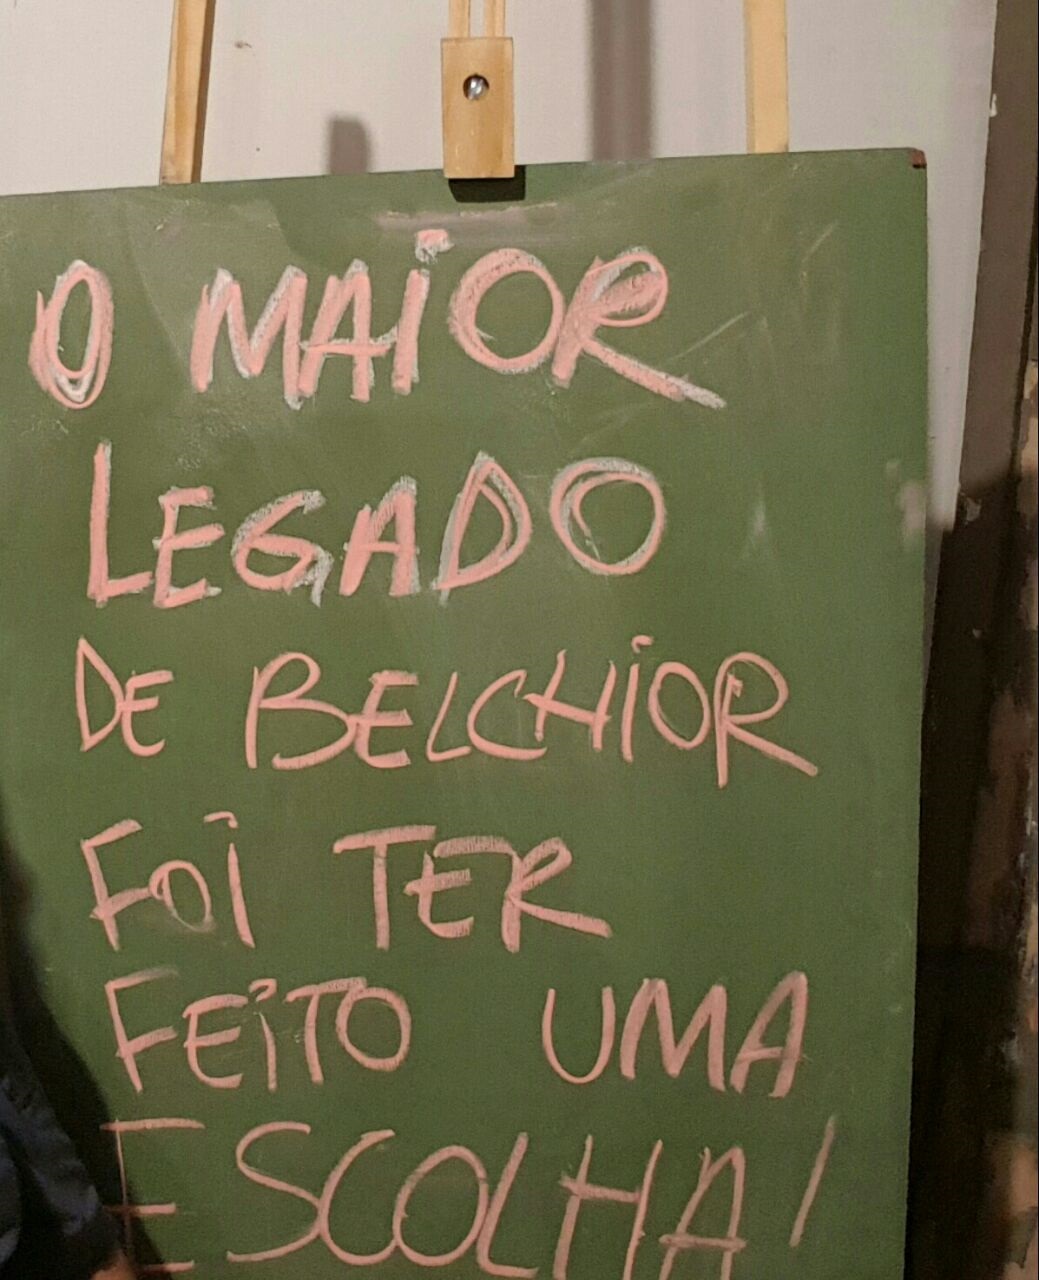 O MAIOR
LEGADO
DE BELCHIOR
FOI TER
FEITO UMA
ESCOLHA!